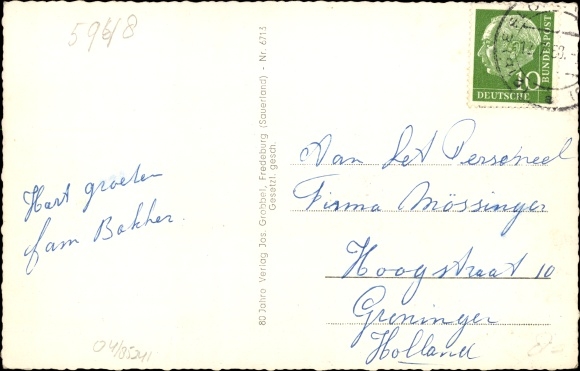 5948
Hart groeten
fam Bakker.
04/85241
80 Jahre Verlag Jos. Grobbel, Fredeburg (Sauerland) - Nr. 6715
Gesetzl. gesch.
10
DEUTSCHE
BUNDESPOST
Aan het Personeel
Firma Mössinger
Hoogstraat 10
Groningen
Holland